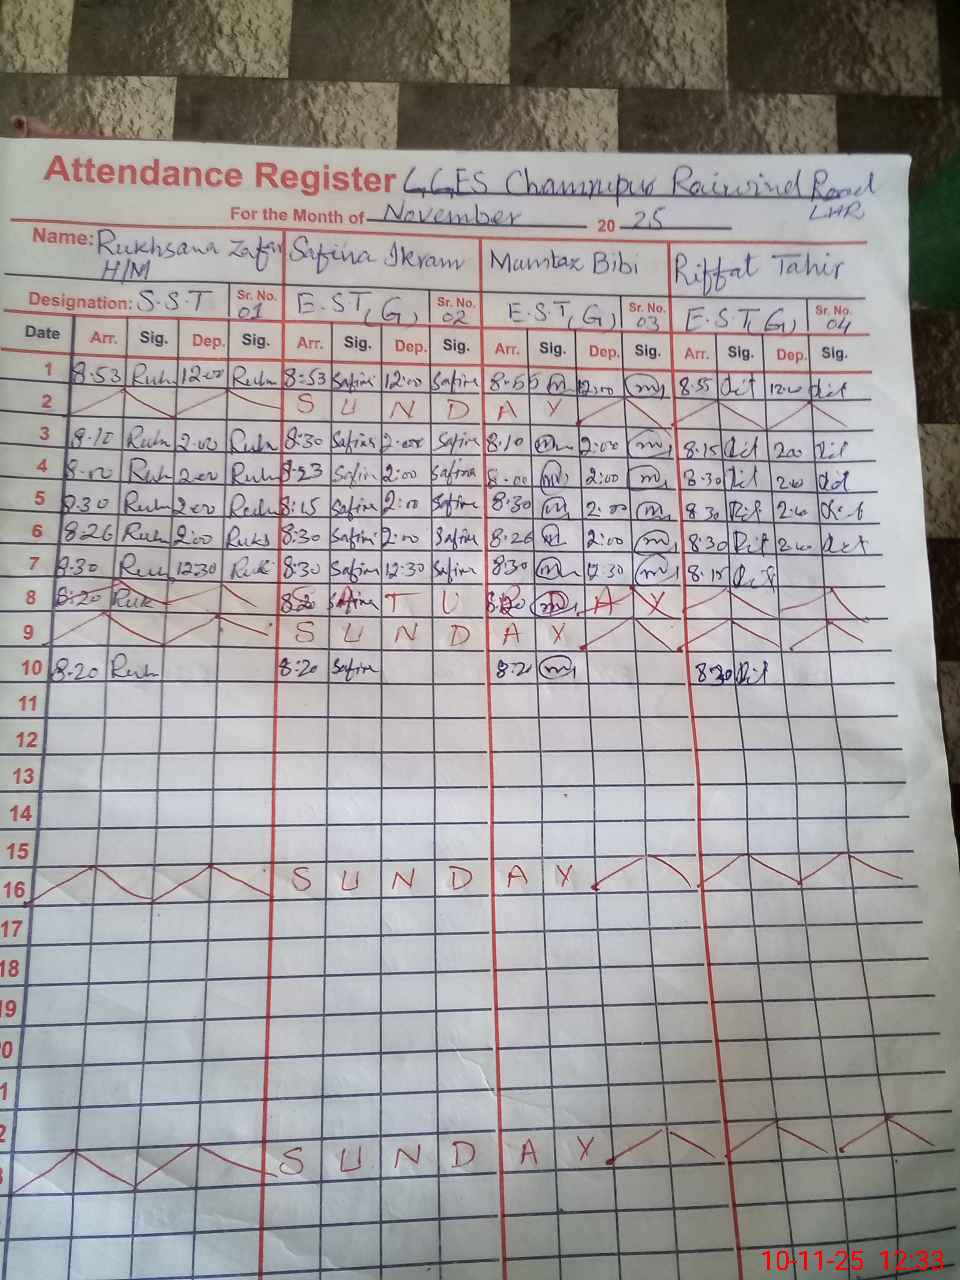 Attendance Register G,G,ES Chamrupur Raiwind Road
LHR
For the Month of November 20 25
Name: Rukhsana Zafar Safina Ikram Mumtaz Bibi Riffat Tahir
H/M
Designation: S.S.T Sr. No. 01 E.S.T,(G) Sr. No. 02 E.S.T,(G) Sr. No. 03 E.S.T,(G) Sr. No. 04
Date Arr. Sig. Dep. Sig. Arr. Sig. Dep. Sig. Arr. Sig. Dep. Sig. Arr. Sig. Dep. Sig.
1 8.53 Ruh 12.00 Ruh 8:53 Safina 12:00 Safina 8.55 m 12:00 m 8.55 Rif 12.00 Rif
2 S U N D A Y
3 8.10 Ruh 2.00 Ruh 8:30 Safina 2:00 Safina 8:10 m 2:00 m 8.15 Rif 2.00 Rif
4 8.00 Ruh 2.00 Ruh 8:23 Safina 2:00 Safina 8.00 m 2:00 m 8.30 Rif 2.00 Rif
5 8.30 Ruh 2.00 Ruh 8:15 Safina 2:00 Safina 8:30 m 2:00 m 8.30 Rif 2.00 Rif
6 8.26 Ruh 2.00 Ruh 8:30 Safina 2:00 Safina 8:26 m 2:00 m 8:30 Rif 2.00 Rif
7 8.30 Ruh 12:30 Ruk 8:30 Safina 12:30 Safina 8:30 m 12:30 m 8:15 Rif
8 8:20 Ruk 8:20 Safina T U 8:20 m A Y
9 S U N D A Y
10 8.20 Ruh 8:20 Safina 8:20 m 8:30 Rif
11
12
13
14
15
16 S U N D A Y
17
18
19
0
1
2
S U N D A Y
10-11-25 12:33